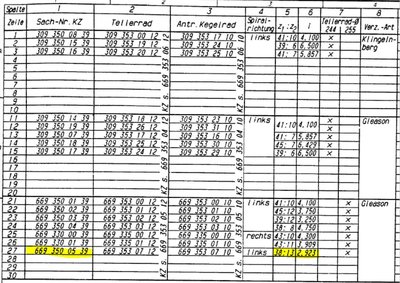 Spalte 1 2 3 4 5 6 7 8
Zeile Sach-Nr. KZ Tellerrad Antr. Kegelrad Spiral-richtung z1:z2 i Tellerrad-Ø 244 255 Verz.-Art
1 309 350 08 39 309 353 00 12 309 353 17 10 links 41:10 4,100 × Klingeln-berg
2 309 350 15 39 309 353 19 12 309 353 24 10 39: 6 6,500 ×
3 309 350 16 39 309 353 20 12 309 353 25 10 41: 7 5,857 ×
4
5
6
7
8
9
10
KZ s. 669 353 06 12
KZ s. 669 353 06 10
11 309 350 14 39 309 353 18 12 309 353 23 10 links 41:10 4,100 × Gleason
12 309 350 19 39 309 353 26 12 309 353 31 10
13 309 350 09 39 309 353 11 12 309 353 16 10 41: 7 5,857 ×
14 309 350 18 39 309 353 25 12 309 353 30 10 45: 7 6,429 ×
15 309 350 17 39 309 353 24 12 309 353 29 10 39: 6 6,500 ×
16
17
18
19
20
KZ s. 669
KZ s. 669
21 669 350 01 39 669 353 00 12 669 353 00 10 links 41:10 4,100 × Gleason
22 669 350 02 39 669 353 01 12 669 353 01 10 45:12 3,750 ×
23 669 350 03 39 669 353 02 12 669 353 02 10 39:12 3,250 ×
24 669 350 04 39 669 353 03 12 669 353 03 10 36: 8 4,750 ×
25 669 330 00 39 669 335 00 12 669 335 00 10 rechts 43:10 4,300 ×
26 669 330 01 39 669 335 01 12 669 335 01 10 43:11 3,909 ×
27 669 350 05 39 669 353 07 12 669 353 07 10 links 38:13 2,923 ×
28
29
30
KZ s. 669 353 05 12
KZ s. 669 353 05 10